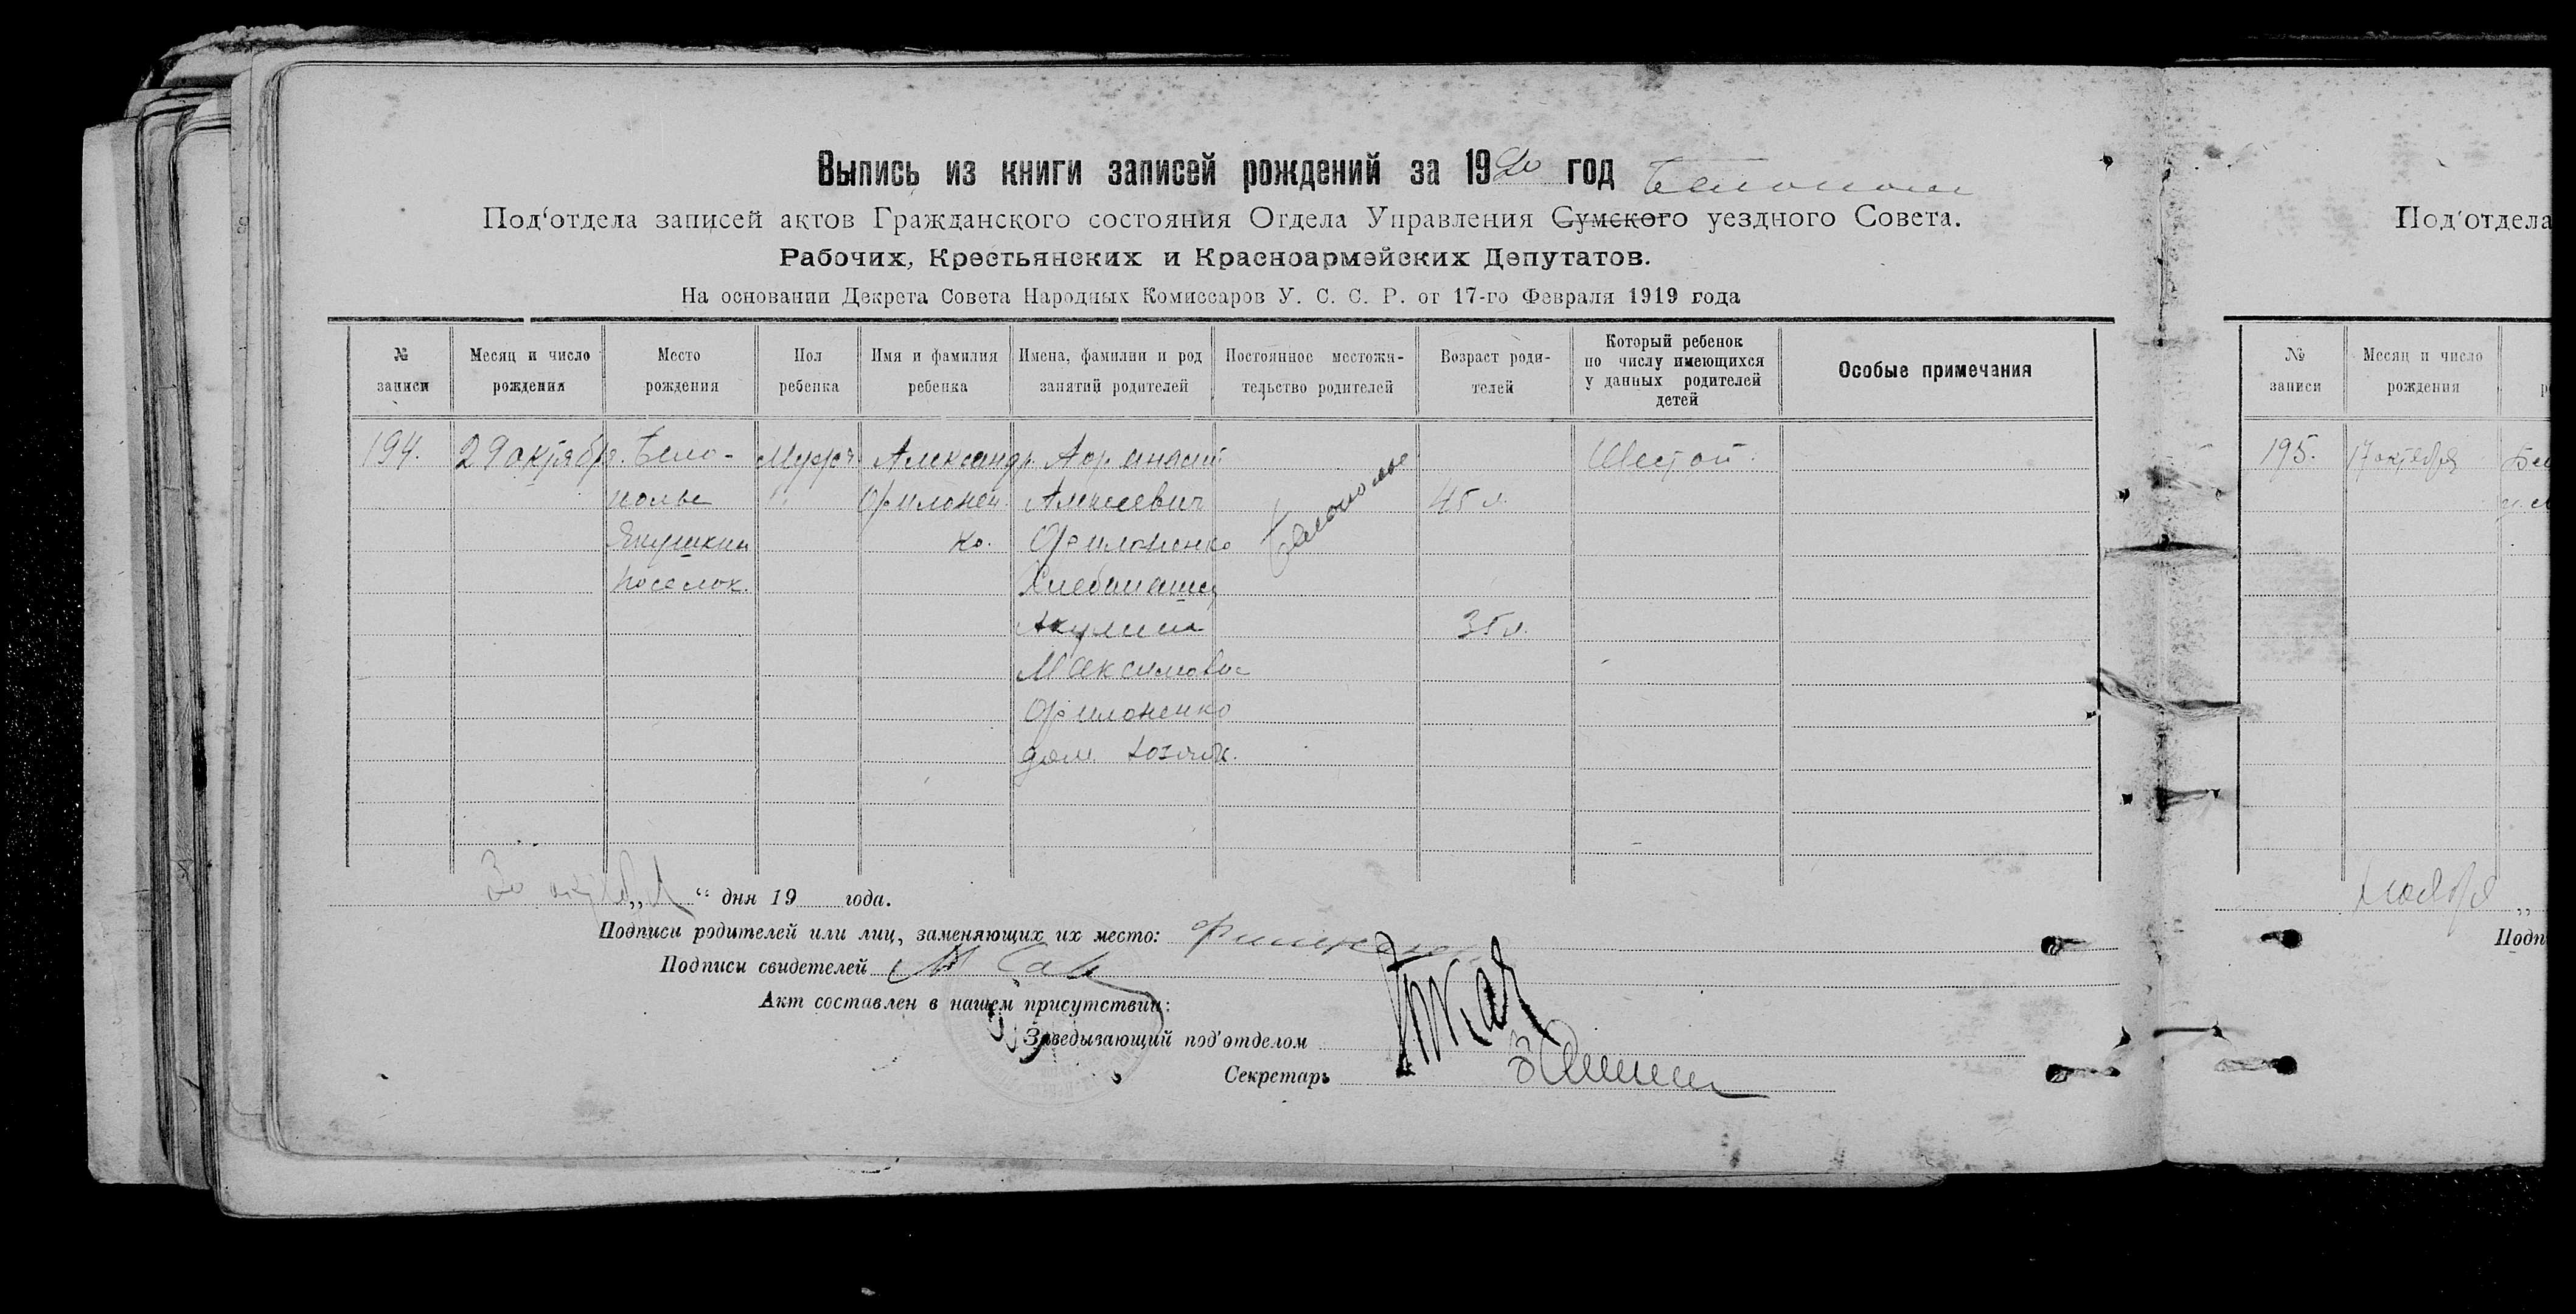 Выпись из книги записей рождений за 1920 год Белополь
Под‘отдела записей актов Гражданского состояния Отдела Управления Сумского уездного Совета.
Рабочих, Крестьянских и Красноармейских Депутатов.
На основании Декрета Совета Народных Комиссаров У. С. С. Р. от 17-го Февраля 1919 года
№ записи
Месяц и число рождения
Место рождения
Пол ребенка
Имя и фамилия ребенка
Имена, фамилии и род занятий родителей
Постоянное местожи-
тельство родителей
Возраст роди-
телей
Который ребенок
по числу имеющихся
у данных родителей
детей
Особые примечания
194.
29 октябр.
Бело-
полье
поселок.
Мужск.
Александр
Филонен
ко.
Афанасий
Алексеевич
Филоненко
Хлебопашец
Акулина
Максимовна
Филоненко
дом. хозяйк.
Белополье
45 л.
35 л.
Шестой.
30 октября „ “ дня 19 года.
Подписи родителей или лиц, заменяющих их место:
Подписи свидетелей
Акт составлен в нашем присутствии:
Заведызающий под'отделом
Секретарь
Под'отдела
№ записи
Месяц и число рождения
195.
17 октября
Ноября „
Подп